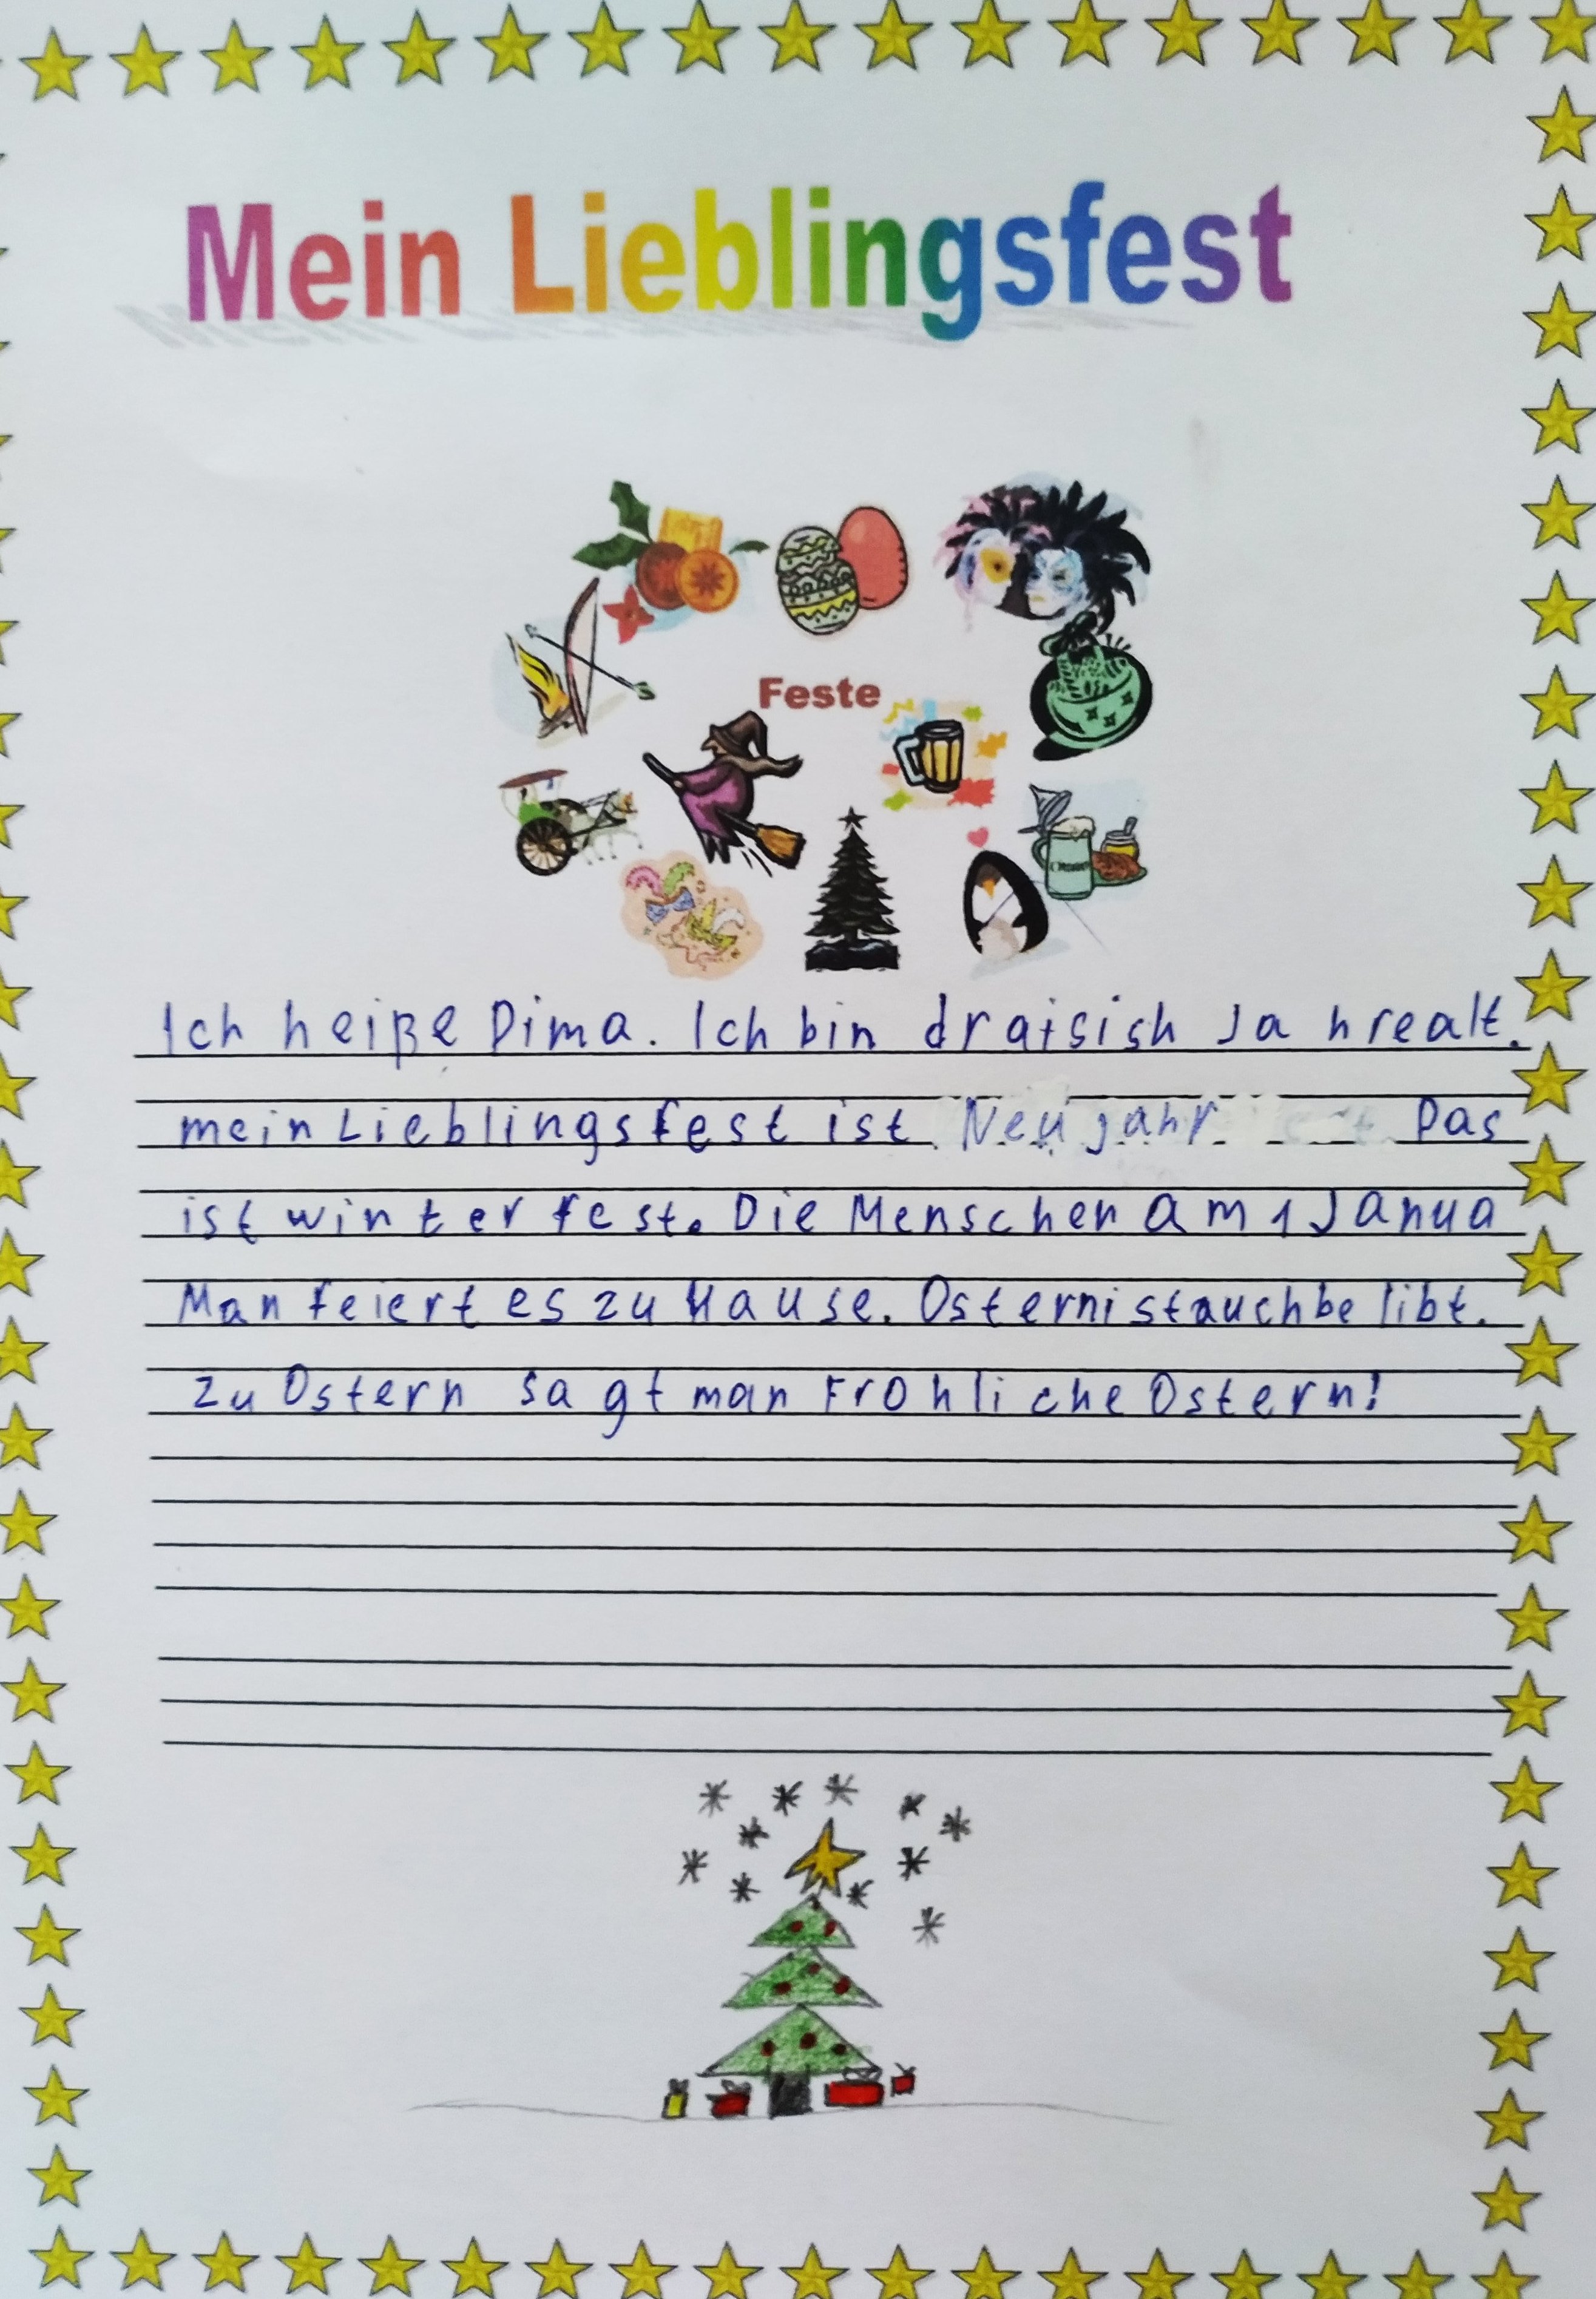 Mein Lieblingsfest
Feste
Ich heiße Dima. Ich bin draisish Jahrealt.
mein Lieblingsfest ist Neujahr. Das
ist winterfest. Die Menschen am 1 Janua
Man feiert es zu Hause. Ostern ist auch belibt.
zu Ostern sagt man Frohliche Ostern!